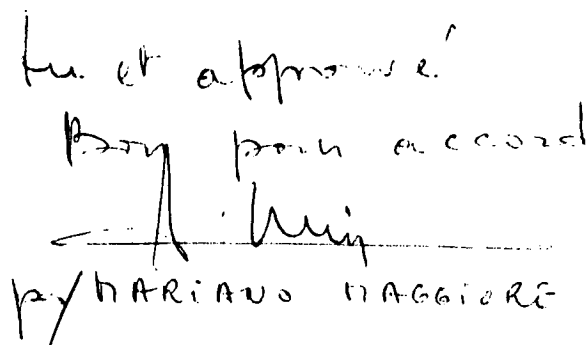 Lu et approuvé
Bon pour accord
p/ MARIANO MAGGIORE